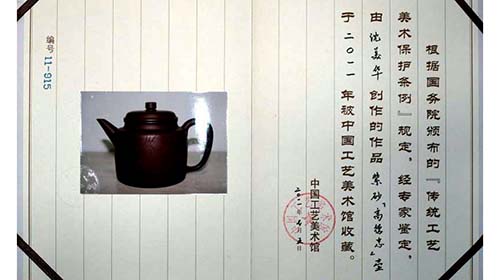 根据国务院颁布的『传统工艺
美术保护条例』规定，经专家鉴定，
由沈华创作的作品紫砂“高志”壶
于二〇一一年被中国工艺美术馆收藏。
中国工艺美术馆
二〇一一年
编号 11-915